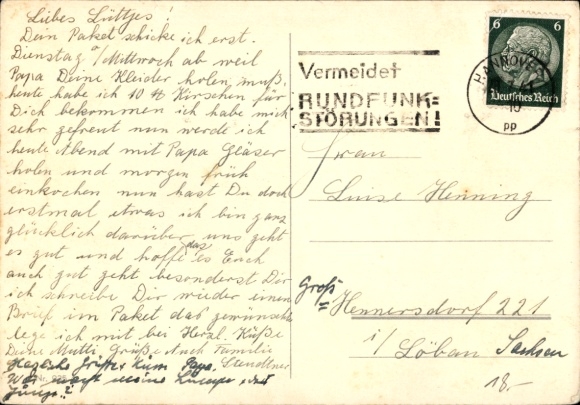 Liebes Lüttjes!
Dein Paket schicke ich erst.
Dienstag o/Mittwoch ab weil
Papa Deine Kleider holen muß,
heute habe ich 10 ℔ Kirschen für
Dich bekommen ich habe mich
sehr gefreut nun werde ich
heute Abend mit Papa Gläser
holen und morgen früh
einkochen nun hast Du doch
erstmal etwas ich bin ganz
glücklich darüber, uns geht
es gut und hoffe das es Euch
auch gut geht besonderst Dir
ich schreibe Dir wieder einen
Brief im Paket das gewünschte
lege ich mit bei Herzl. Küße
Deine Mutti Grüße Auch Familie
Stendtner
Herzliche Grüße Papa
Was macht meine
Junge?
Vermeidet
RUNDFUNK=
STÖRUNGEN!
HANNOVER
10
pp
6 6
Deutsches Reich
Frau
Luise Henning
Groß
Hennersdorf 221
i/ Löbau Sachsen
18.-